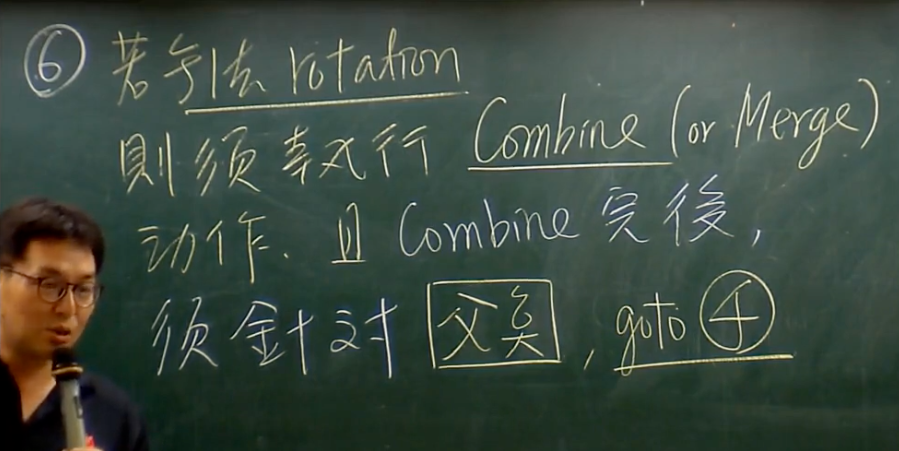 ⑥ 若无法 rotation
則须執行 Combine (or Merge)
动作、且 Combine 完後,
须針对 父奌, goto ④